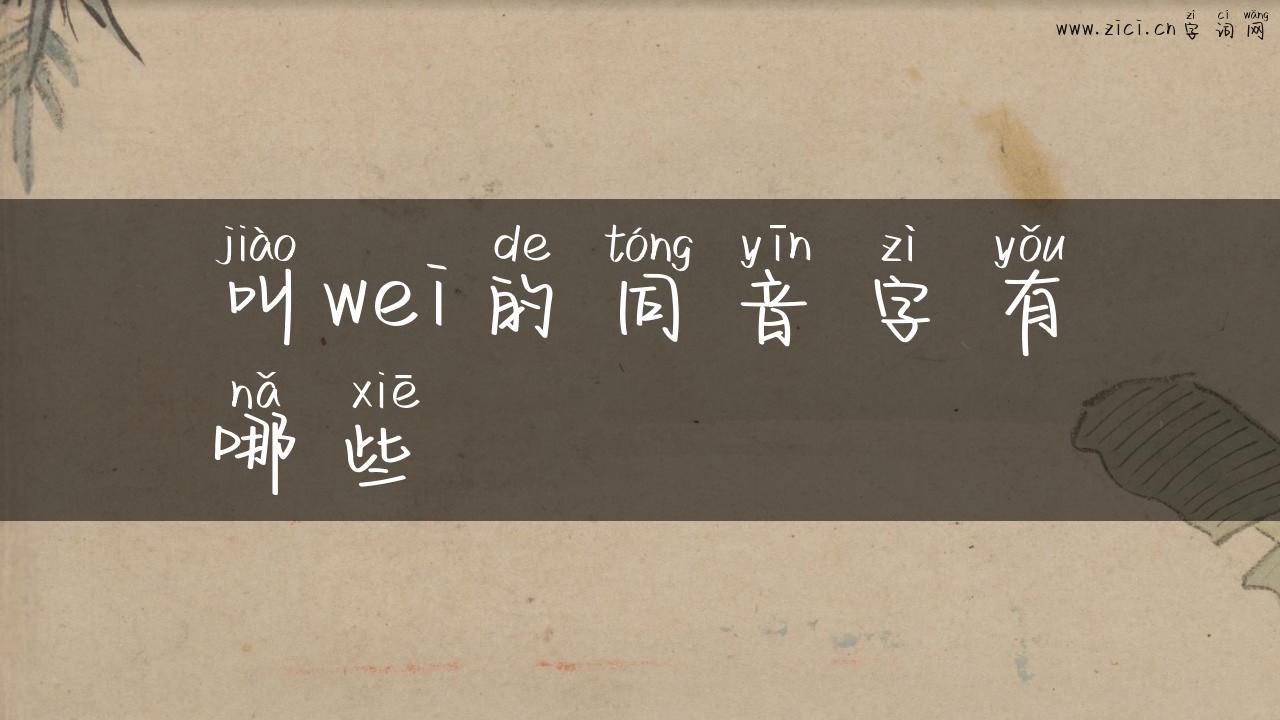 zì cí wǎng
www.zici.cn 字 词 网
jiào de tóng yīn zì yǒu
叫wei的 同 音 字 有
nǎ xiē
哪 些